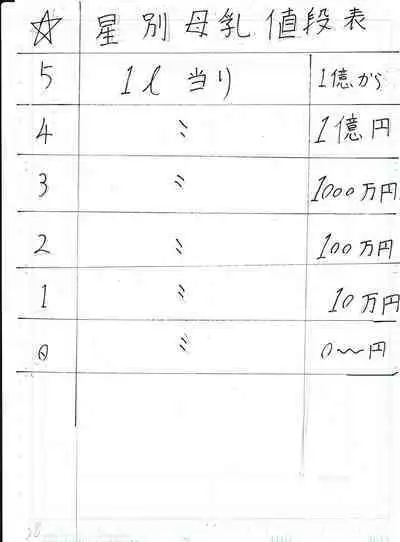 ☆ 星別母乳値段表
5 1ℓ当り 1億から
4 〃 1億円
3 〃 1000万円
2 〃 100万円
1 〃 10万円
0 〃 0〜円